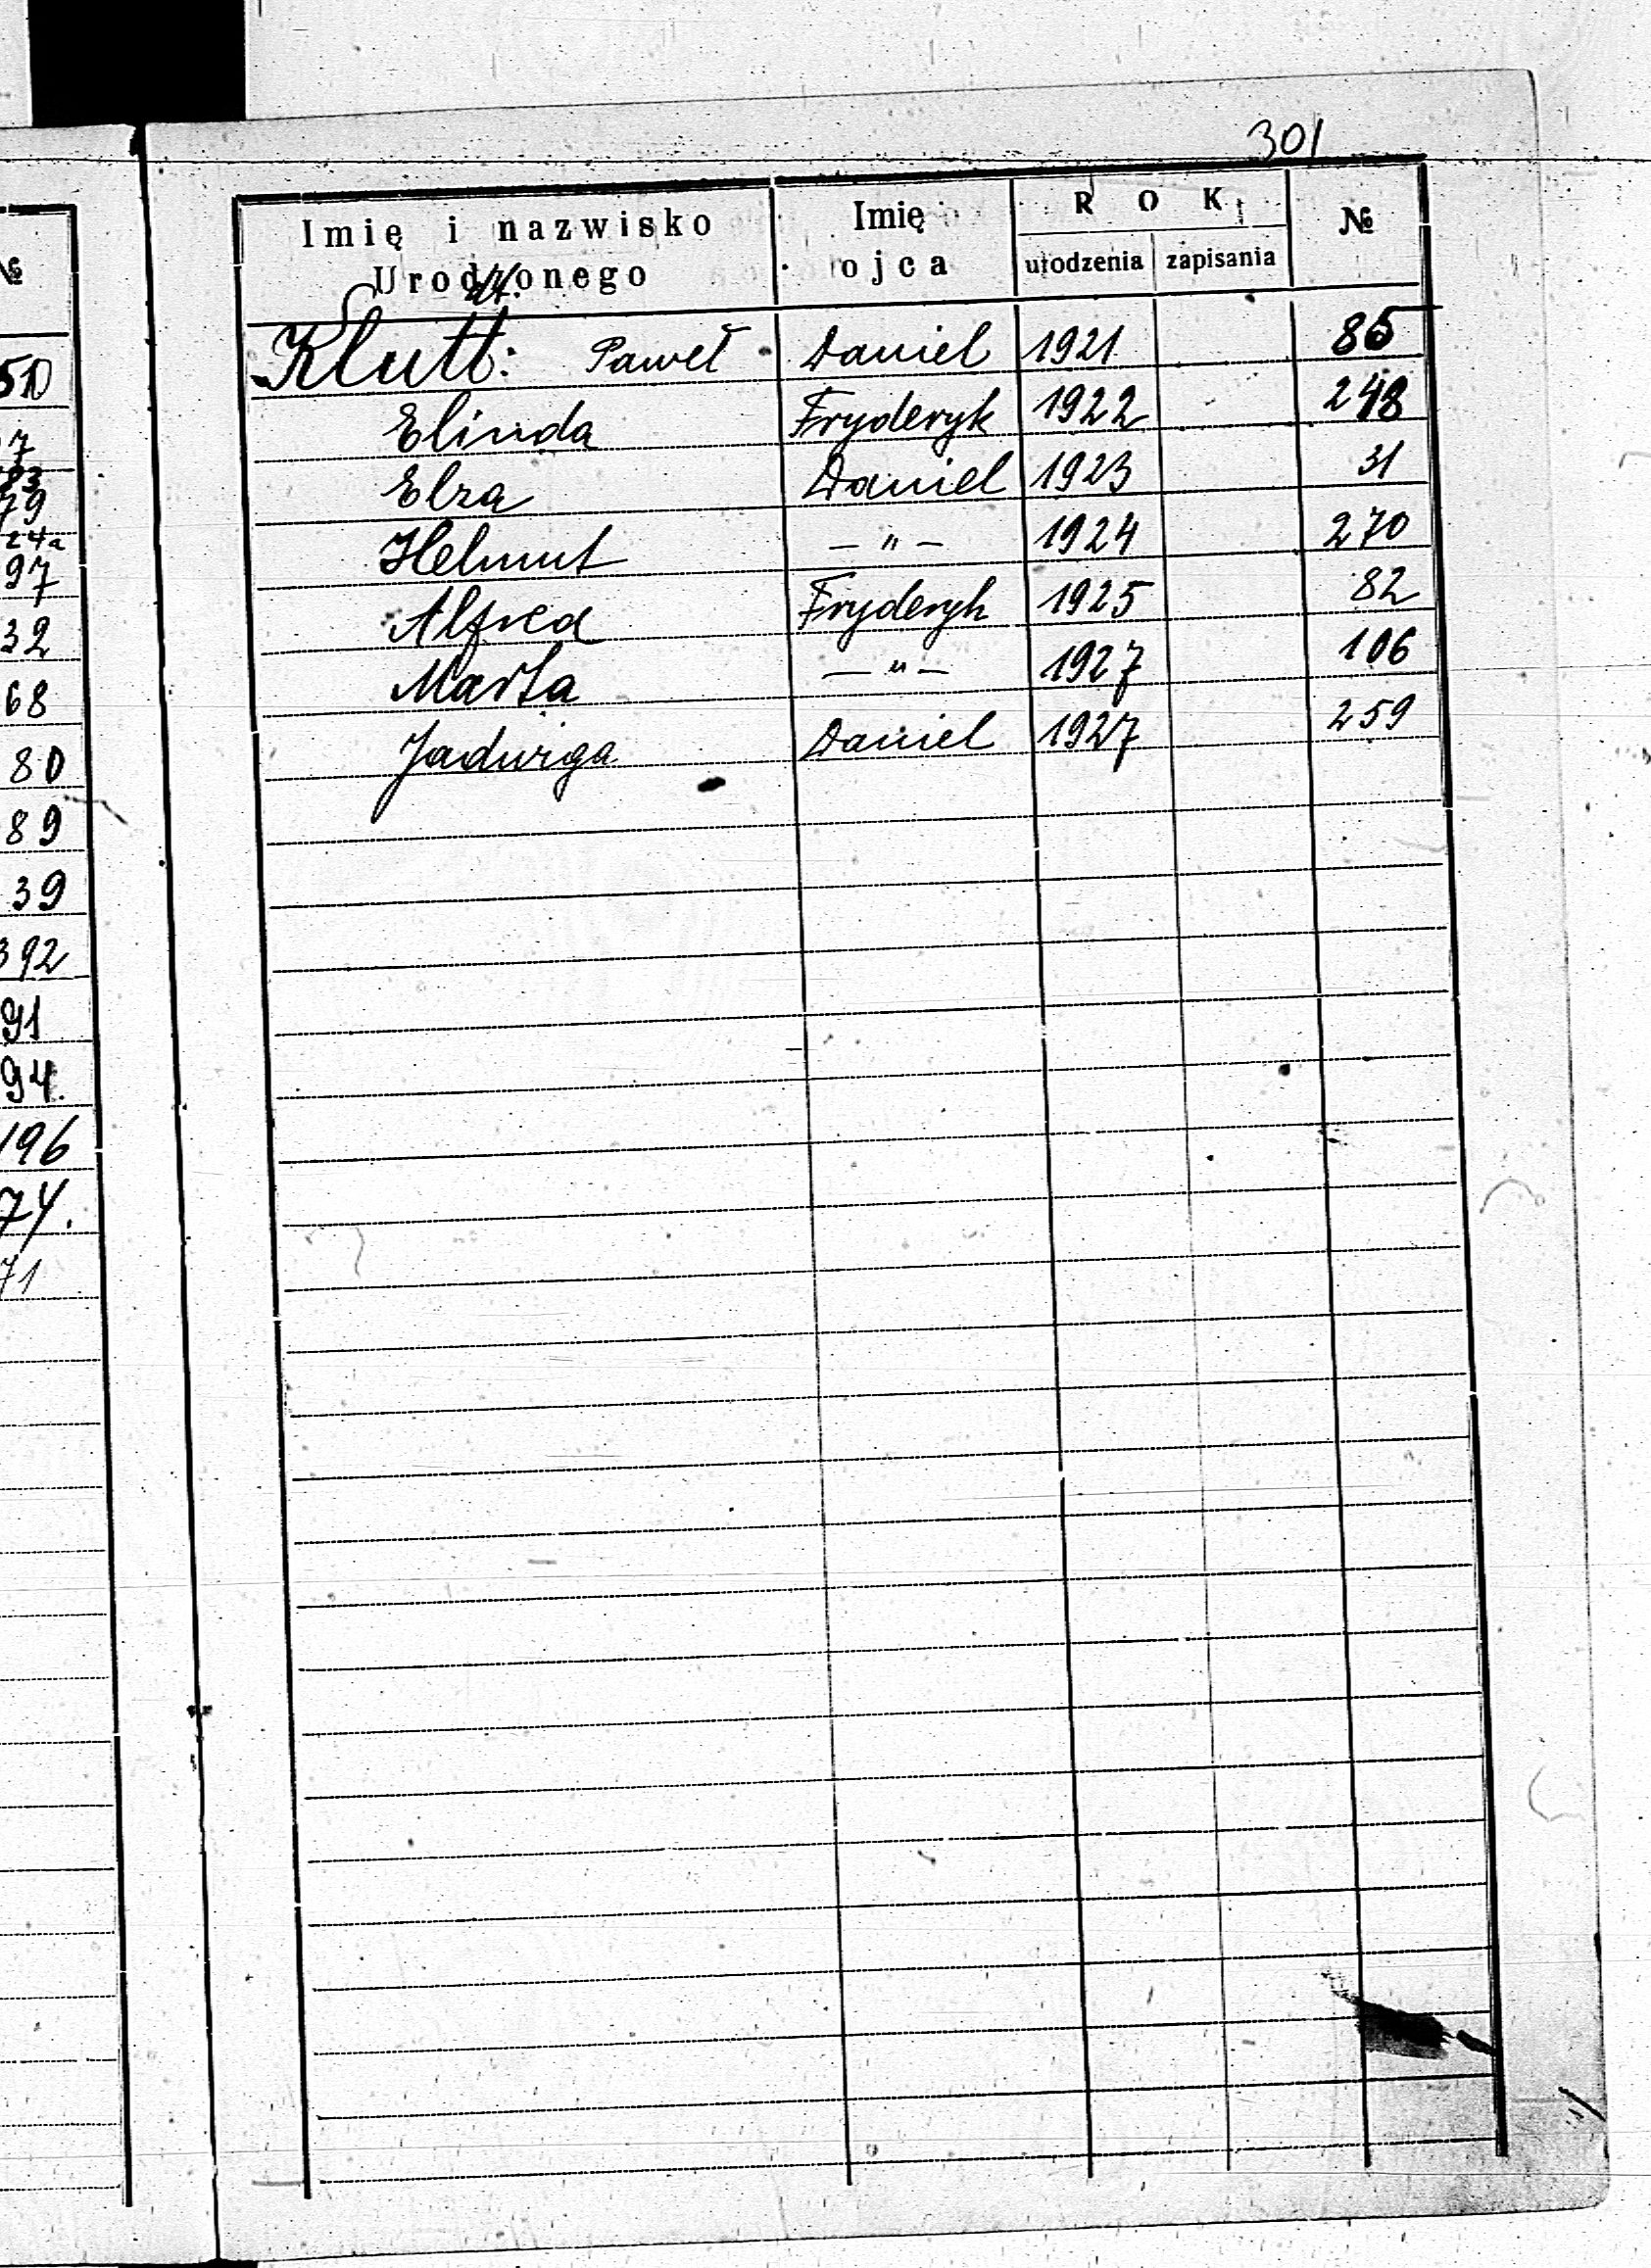 301
Imię i nazwisko
Urodzonego
Imię
ojca
ROK
urodzenia zapisania
№
Klutt: Paweł Daniel 1921 85
Elinda Fryderyk 1922 248
Elza Daniel 1923 31
Helmut — " — 1924 270
Alfred Fryderyk 1925 82
Marta — " — 1927 106
Jadwiga Daniel 1927 259
№
97
32
68
80
89
39
392
91
94.
196
74.
71